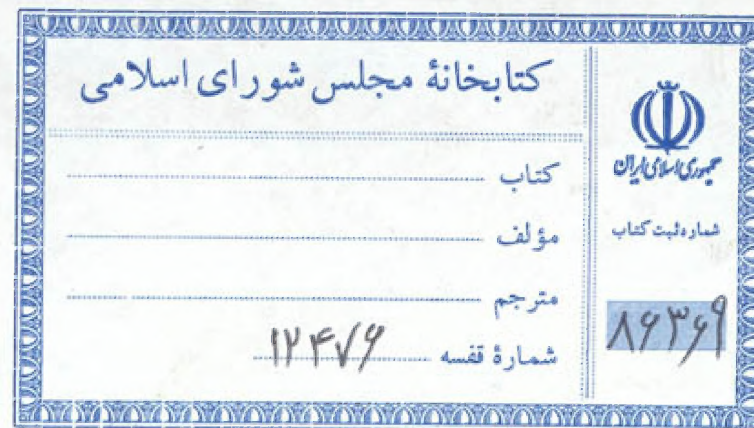 کتابخانهٔ مجلس شورای اسلامی
کتاب
مؤلف
مترجم
شمارهٔ قفسه ۱۲۴۷۶
جمهوری اسلامی ایران
شماره ثبت کتاب
۸۶۳۶۹